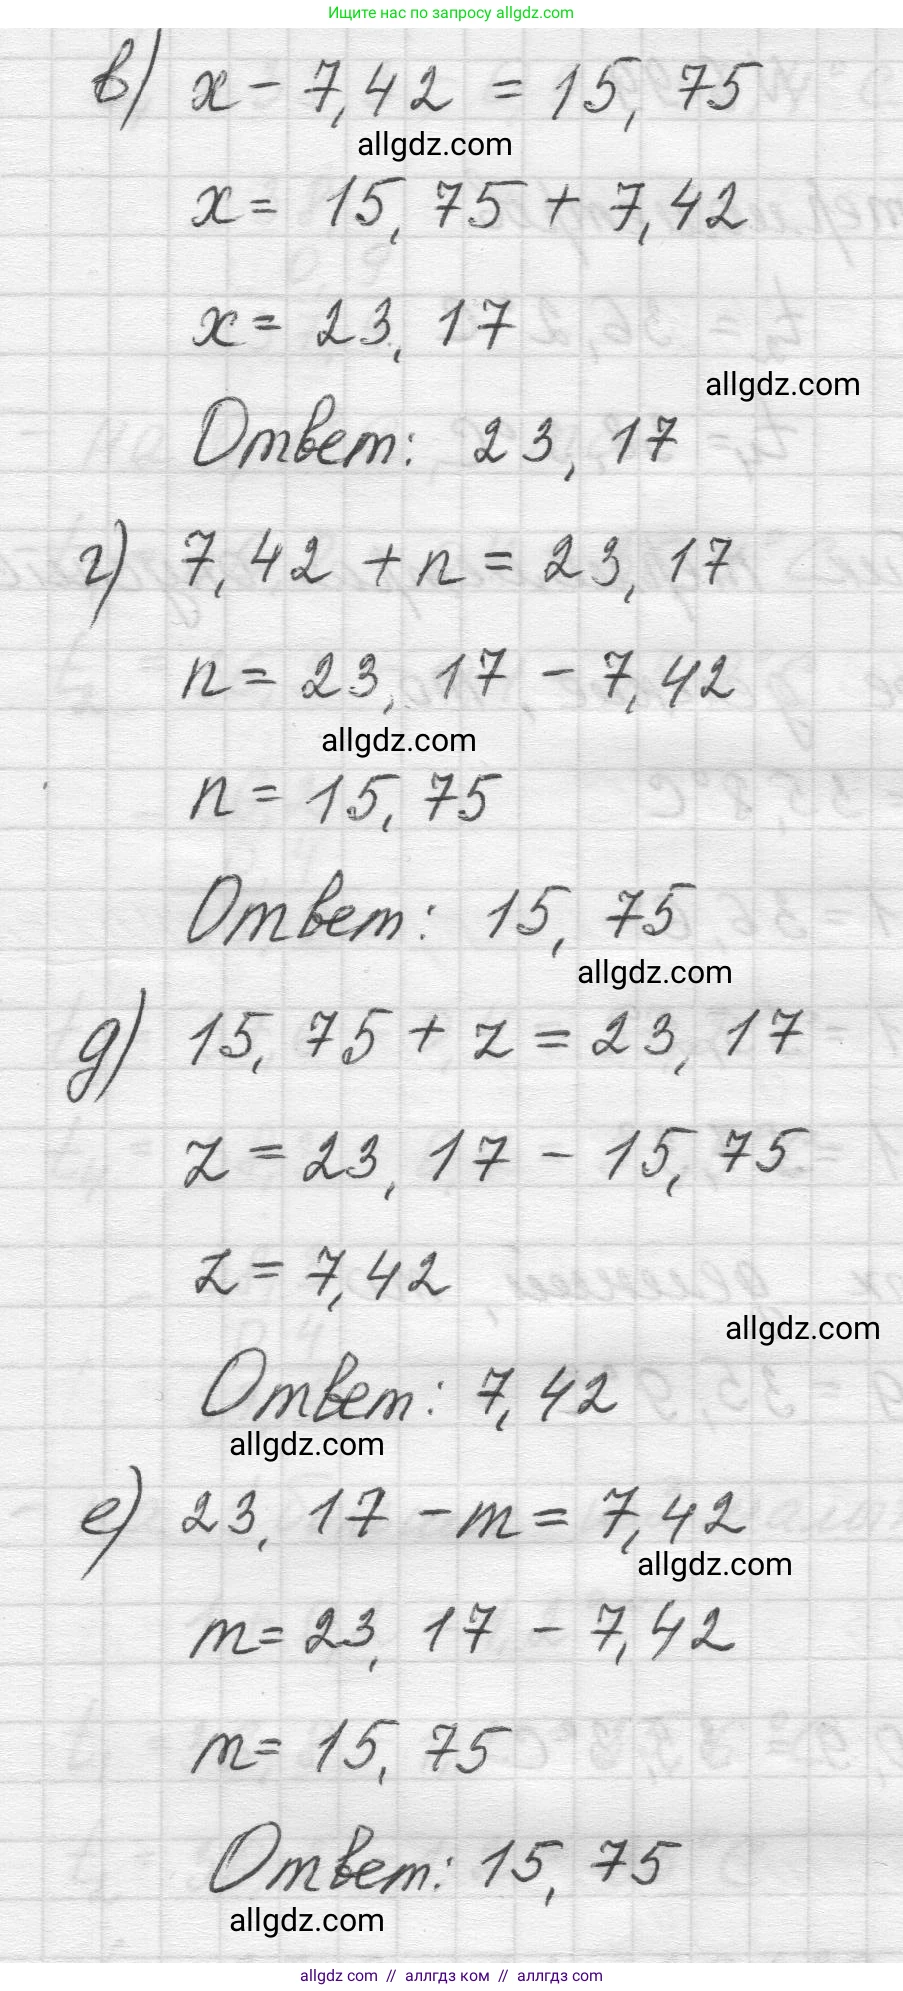 Ищите нас по запросу allgdz.com
в) x - 7,42 = 15,75
allgdz.com
x = 15,75 + 7,42
x = 23,17
allgdz.com
Ответ: 23,17
г) 7,42 + n = 23,17
n = 23,17 - 7,42
allgdz.com
n = 15,75
Ответ: 15,75
allgdz.com
д) 15,75 + z = 23,17
z = 23,17 - 15,75
z = 7,42
allgdz.com
Ответ: 7,42
allgdz.com
е) 23,17 - m = 7,42
allgdz.com
m = 23,17 - 7,42
m = 15,75
Ответ: 15,75
allgdz.com
allgdz.com // аллгдз ком // аллгдз.com